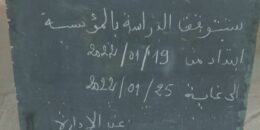 ستتوقف الدراسة بالمؤسسة
ابتداء من 19/01/2022
الى غاية 25/01/2022
عن الادارة